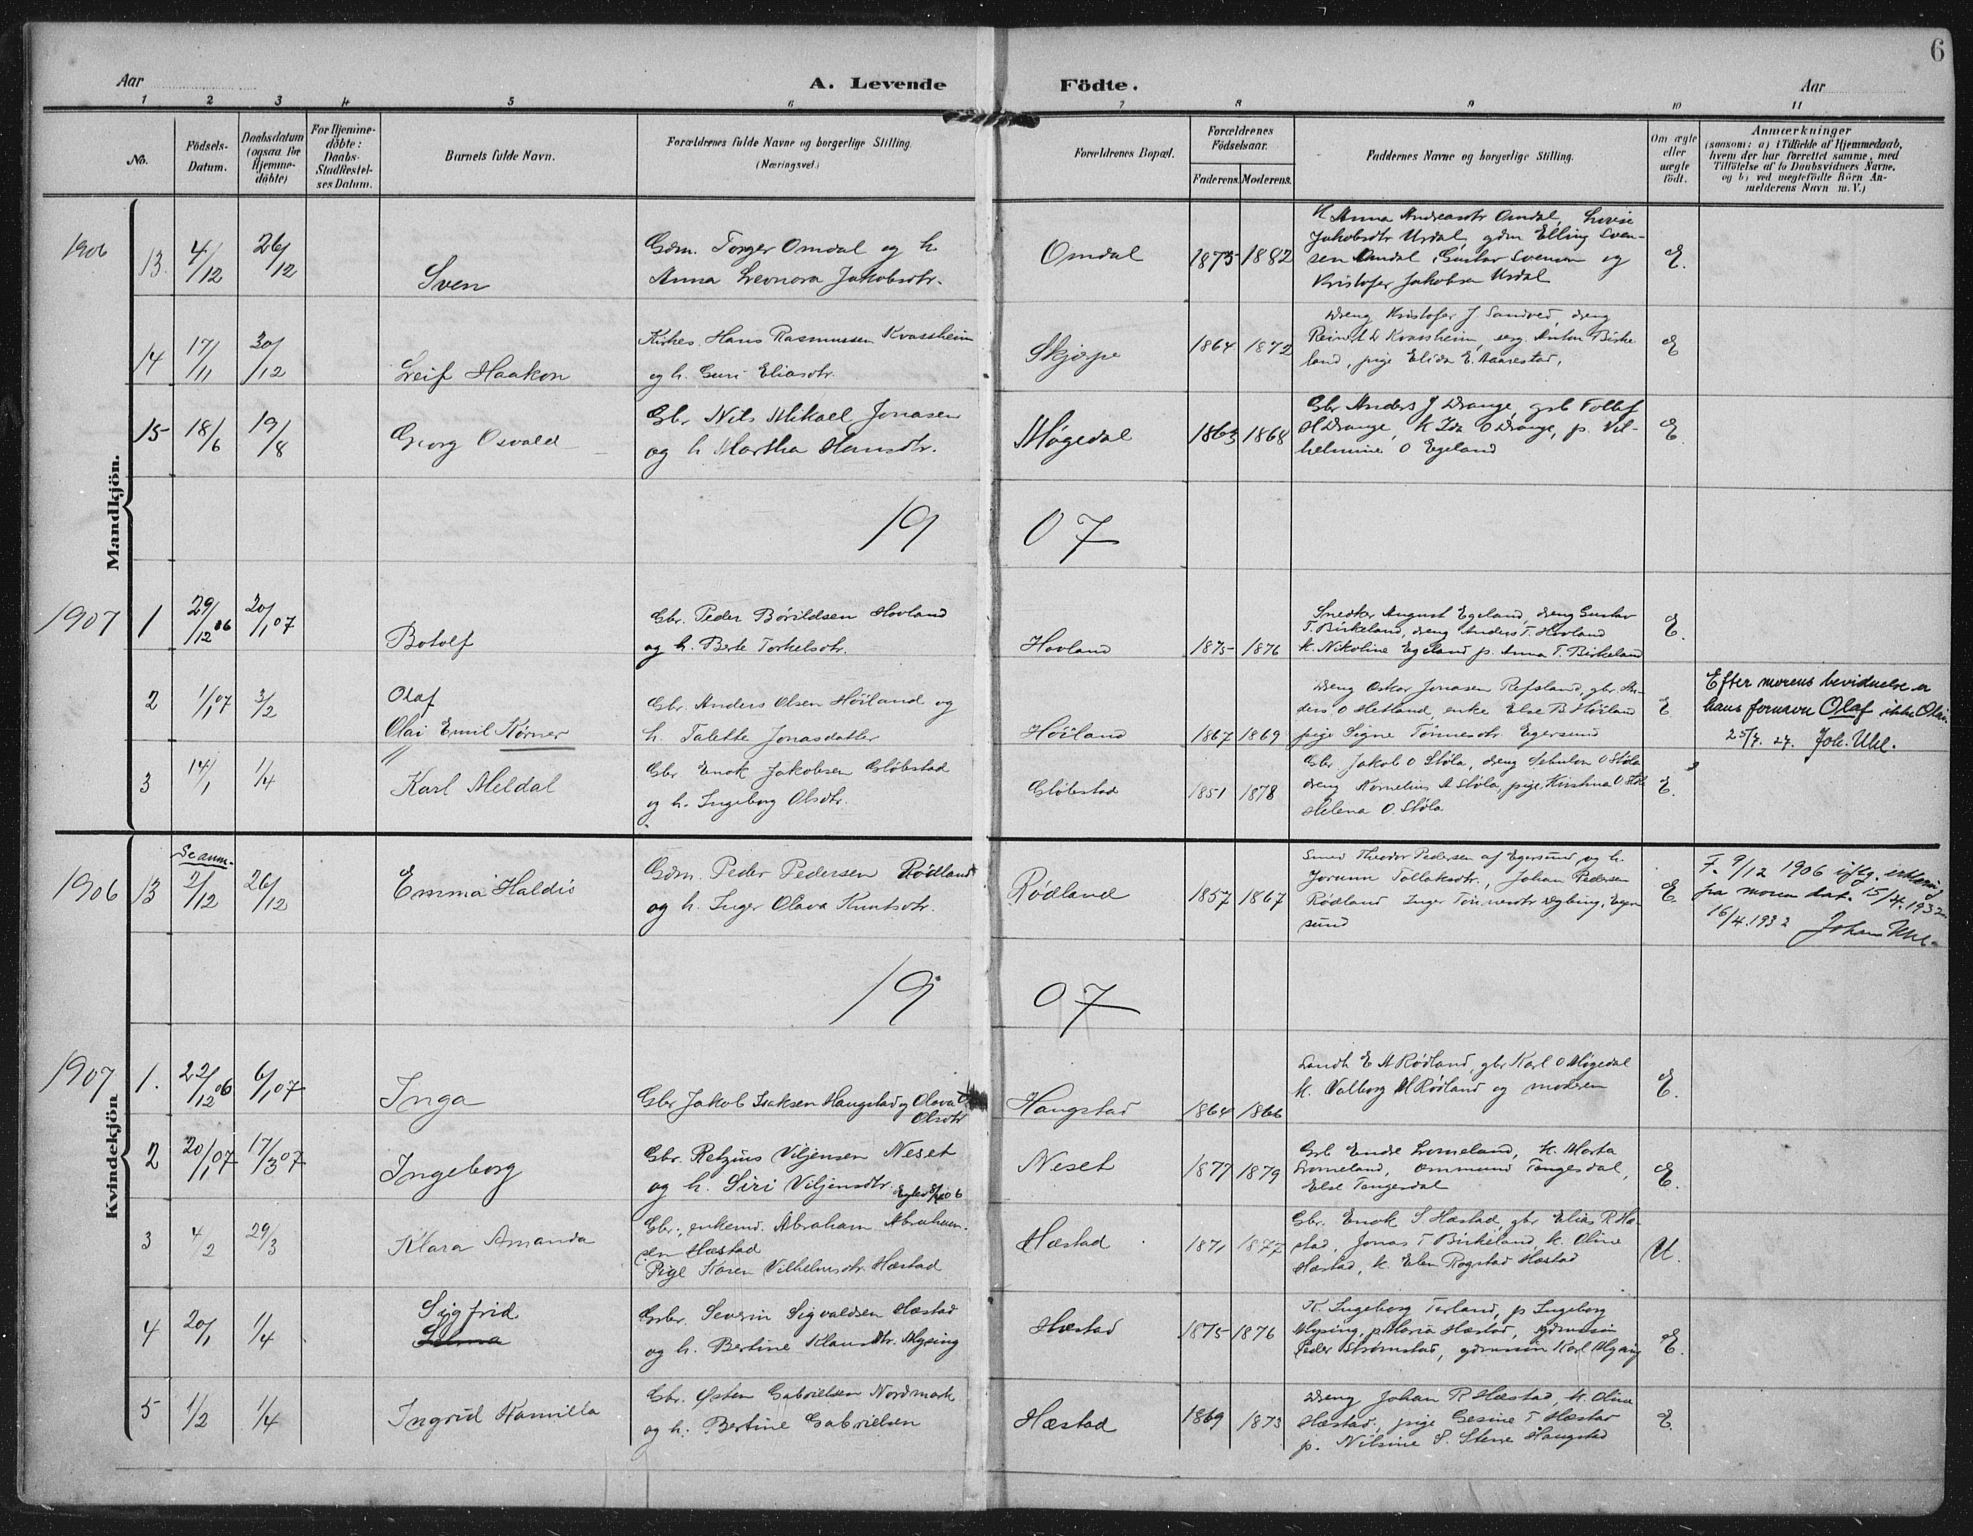 6
Aar
A. Levende
Födte.
Aar
1 2 3 4 5 6 7 8 9 10 11
No.
Födsels-
Datum.
Daabsdatum
(ogsaa for
Hjemme-
döbte)
For Hjemme-
döbte:
Daabs-
Stadfæstel-
ses Datum.
Barnets fulde Navn.
Forældrenes fulde Navne og borgerlige Stilling.
(Næringsvei.)
Forældrenes Bopæl.
Forældrenes
Födselsaar.
Faderens. Moderens.
Faddernes Navne og borgerlige Stilling.
Om ægte
eller
uægte
födt.
Anmærkninger
(saasom: a) i Tilfælde af Hjemmedaab,
hvem der har forrettet samme, med
Tilföielse af to Daabsvidners Navne,
og b) ved uægtefödte Börn An-
melderens Navn m. V.)
Mandkjön.
1906
13. 4/12 26/12 Sven
Gdm. Torger Omdal og h.
Anna Leonora Jakobsdtr.
Omdal 1873 1882
K Anna Andreasdtr Omdal, Lovise
Jakobsdtr Urdal, gdm Elling Sven-
sen Omdal, Gustav Svensen og
Kristofer Jakobsen Urdal
E.
14 17/11 30/12 Leif Haakon
Kirkes. Hans Rasmussen Kvassheim
og h. Guri Eliasdtr.
Skjærpe 1864 1872
Dreng Kristofer J Sandved, dreng
Reinholdt Kvassheim, Anton Birke-
land, pige Elida E. Aarestad,
E
15 18/6 19/8 Georg Osvald
Gbr Nils Mikael Jonasen
og h Martha Hansdtr.
Møgedal 1863 1868
Gbr Anders J Drange, gbr Tollef
H Drange, K Ida O Drange, p. Vil-
helmine O Egeland
E.
19 07
1907
1 29/12 06 20/1 07 Botolf
Gbr. Peder Børildsen Hovland
og h. Berte Torkelsdtr.
Hovland 1875 1876
Snedker August Egeland, dreng Gustav
T. Birkeland, dreng Anders T. Hovland
k. Nikoline Egeland p. Anna T. Birkeland
E.
2 1/1 07 3/2 Olaf
Olai Emil Kørner
Gbr. Anders Olsen Höiland og
h. Talette Jonasdatter
Höiland 1867 1869
Dreng Oskar Jonasen Refsland, gbr An-
ders O Hetland, enke Else B Höiland
pige Signe Tönnesdtr. Egersund
E
Efter morens bevidnelse er
hans fornavn Olaf ikke Olai.
25/7. 27. Joh. Uhl.
3 14/1 1/4 Karl Meldal
Gbr Enok Jakobsen Gløbstad
og h. Ingeborg Olsdtr.
Gløbstad 1851 1878
Gbr Jakob O Støla, dreng Sebulon O Støla
dreng Kornelius A Støla, pige Kirstina O Støla
Helena O. Støla
E.
Kvindekjön
1906
Se anm.
13 2/12 26/12 Emma Haldis
Gdm. Peder Pedersen Rödland
og h. Inger Olava Knutsdtr.
Rødland 1857 1867
Smed Theodor Pedersen af Egersund og h.
Jorunn Tollaksdtr., Johan Pedersen
Rödland Inger Tönnesdtr Egers-
sund
E
F. 9/12 1906 iflg. erklæring
fra moren dat. 15/4. 1932.
16/4.1932 Johan Uhl.
19 07
1907
1. 22/12 06 6/1 07 Inga
Gbr Jakob Isaksen Haugstad og Olava
Olsdtr
Haugstad 1864 1866
Landh E A Rødland, gbr Karl O Møgedal
k. Valborg M Rødland og moderen
E.
2 20/1 07 17/3 07 Ingeborg
Gbr. Retzius Viljensen Neset
og h. Siri Viljensdtr.
Neset 1877 1879
Gbr Endre Lomeland, K. Marta
Lomeland, Ommund Tangesdal,
Else Tangesdal
E.
3 4/2 29/3 Klara Amanda
Gbr., enkemd. Abraham Abraham-
sen Hæstad
Pige Karen Vilhelmsdtr. Hæstad
Hæstad 1871 1877
Gbr. Enok S Hæstad, gbr Elias R Hæ-
stad, Jonas T Birkeland, k. Oline
Hæstad, k. Elen Rogstad Hæstad
U.
4 20/1 1/4 Sigfrid
Selma
Gbr. Severin Sigvaldsen Hæstad
og h. Bertine Klausdtr. Mysing
Hæstad 1875 1876
K. Ingeborg Terland, p Ingeborg
Mysing, p Maria Hæstad, gdmssön
Peder Strømstad, gdmssön Karl Mysing
E.
5 1/2 1/4 Ingrid Kamilla
Gbr. Østen Gabrielsen Nordmark
og h. Bertine Gabrielsen
Hæstad 1869 1873
Dreng Johan R Hæstad, k. Olina
Hæstad, pige Gesine T Hæstad
p. Nilsine S. Stene Haugstad
E.